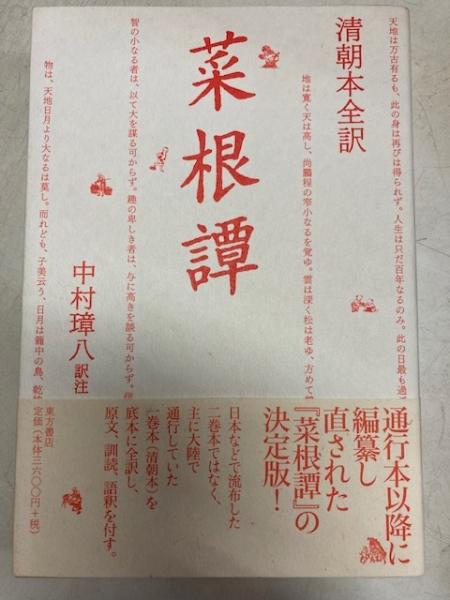 天地は万古有るも、此の身は再びは得られず。人生は只だ百年なるのみ。此の日最も過ご
清朝本全訳
地は寛く天は高し、尚鵬程の窄小なるを覚ゆ。雲は深く松は老ゆ、方めて
菜根譚
智の小なる者は、以て大を謀る可からず。趣の卑しき者は、与に高きを談る可からず。
中村璋八 訳注
物は、天地日月より大なるは莫し。而れども、子美云う、日月は籠中の鳥、乾坤
通行本以降に
編纂し
直された
『菜根譚』の
決定版！
日本などで流布した
二巻本ではなく、
主に大陸で
通行していた
一巻本（清朝本）を
底本に全訳し、
原文、訓読、語釈を付す。
東方書店
定価（本体三六〇〇円＋税）